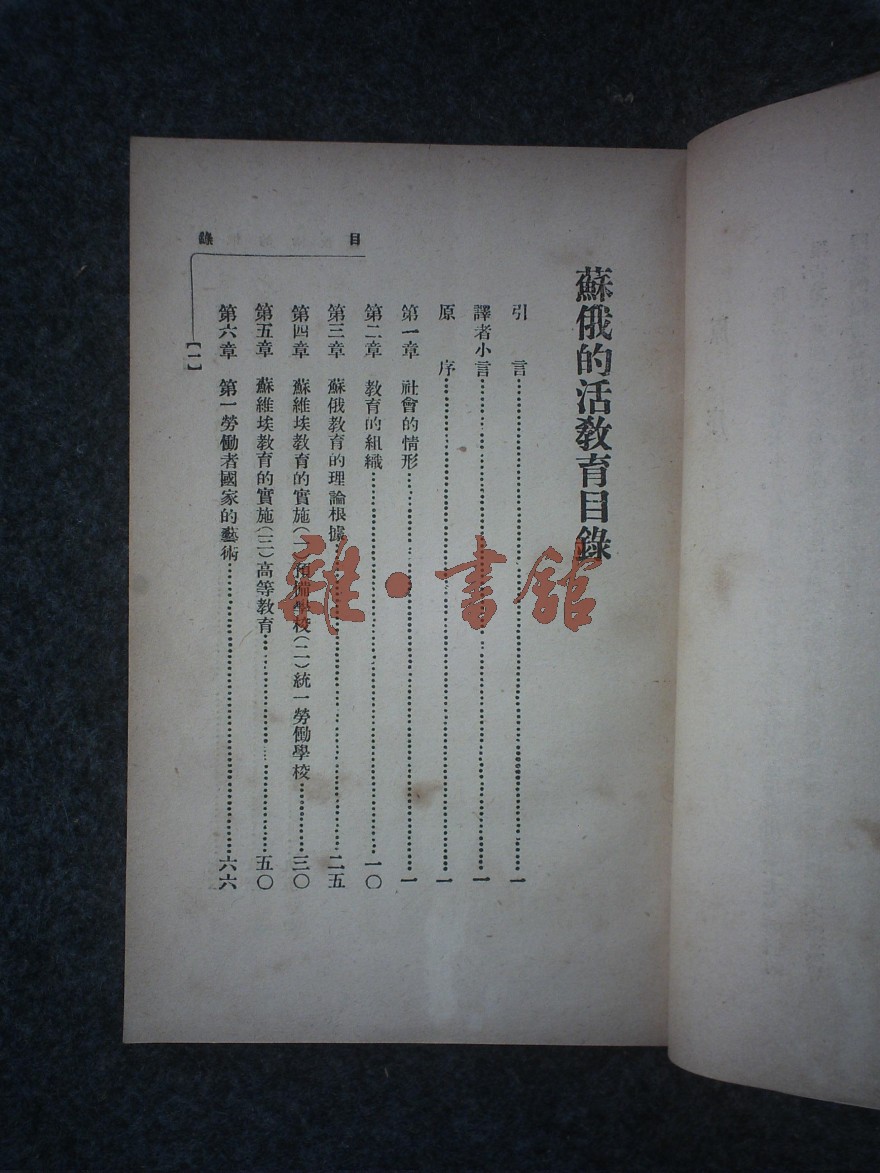 蘇俄的活教育目錄
引言……一
譯者小言……一
原序……一
第一章 社會的情形……一
第二章 教育的組織……一〇
第三章 蘇俄教育的理論根據……二五
第四章 蘇維埃教育的實施(一)預備學校(二)統一勞働學校……三〇
第五章 蘇維埃教育的實施(三)高等教育……五〇
第六章 第一勞働者國家的藝術……六六
目錄
【一】
雜·書館